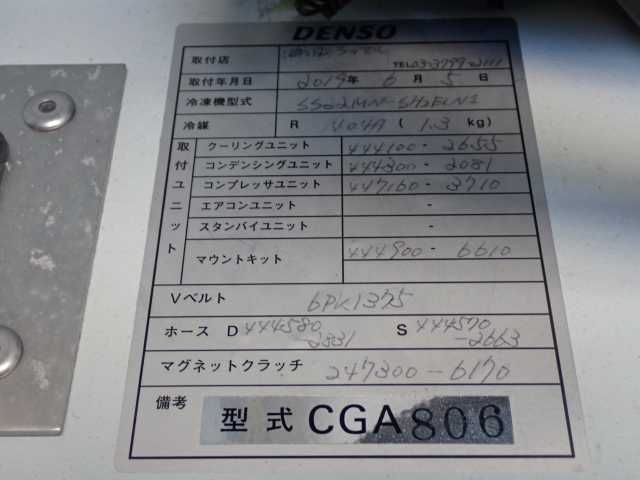 DENSO
取付店 TEL03-3799-2111
取付年月日 2019年 6月 5日
冷凍機型式 SS022MN-SH2ELN1
冷媒 R 404A ( 1.3 kg)
取付ユニット
クーリングユニット 444100-2655
コンデンシングユニット 444300-2081
コンプレッサユニット 447160-3710
エアコンユニット -
スタンバイユニット -
マウントキット 444900-6610
Vベルト 6PK1375
ホース D 444580-2831 S 444570-2663
マグネットクラッチ 247300-6170
備考 型式 CGA806